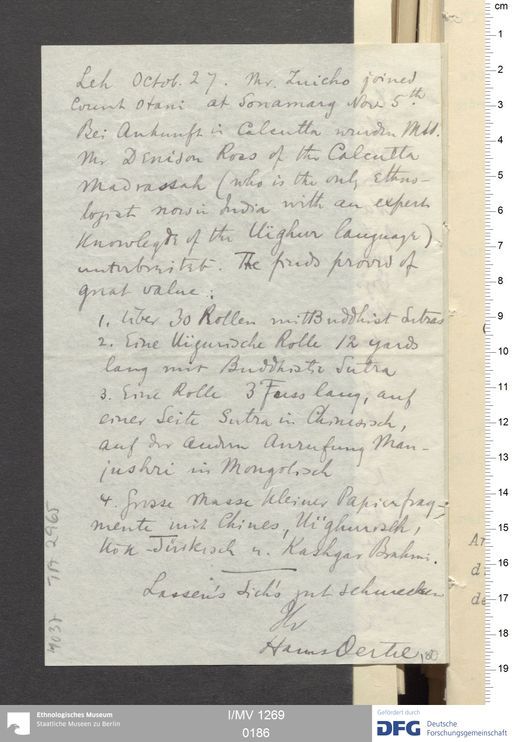 Leh Octob. 27. Mr. Zuicho joined
Count Otani at Sonamarg Nov 5th.
Bei Ankunft in Calcutta wurden Mss.
Mr Denison Ross of the Calcutta
Madrassah (who is the only Ethno-
logist now in India with an expert
Knowlegde of the Uïghur language)
unterbreitet. The finds proved of
great value:
1. Über 30 Rollen mit Buddhist Sutras
2. Eine Uigurische Rolle 12 yards
lang mit Buddhistic Sutra
3. Eine Rolle 3 Fuss lang, auf
einer Seite Sutra in Chinesisch,
auf der andern Anrufung Man-
jushri in Mongolisch
4. Grosse Masse kleiner Papierfrag-
mente mit Chines, Uïghurisch,
Kök-Türkisch u. Kashgar Brahmi.
Lassen's Sich's gut schmecken
Ihr
Hanns Oertel
180
4037 TA 2965
cm
1
2
3
4
5
6
7
8
9
10
11
12
13
14
15
16
17
18
19
Ethnologisches Museum
Staatliche Museen zu Berlin
I/MV 1269
0186
Gefördert durch
DFG Deutsche
Forschungsgemeinschaft